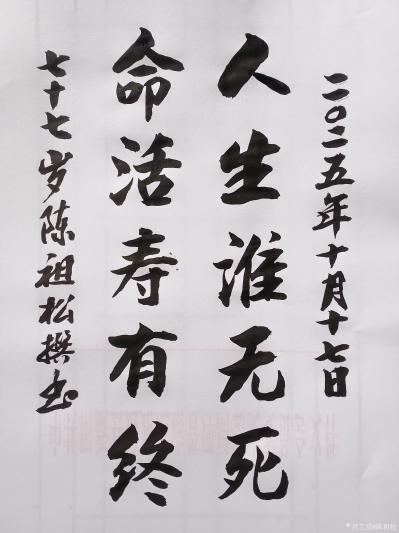 二〇二五年十月十七日
人生谁无死
命活寿有终
七十七岁陈祖松撰书